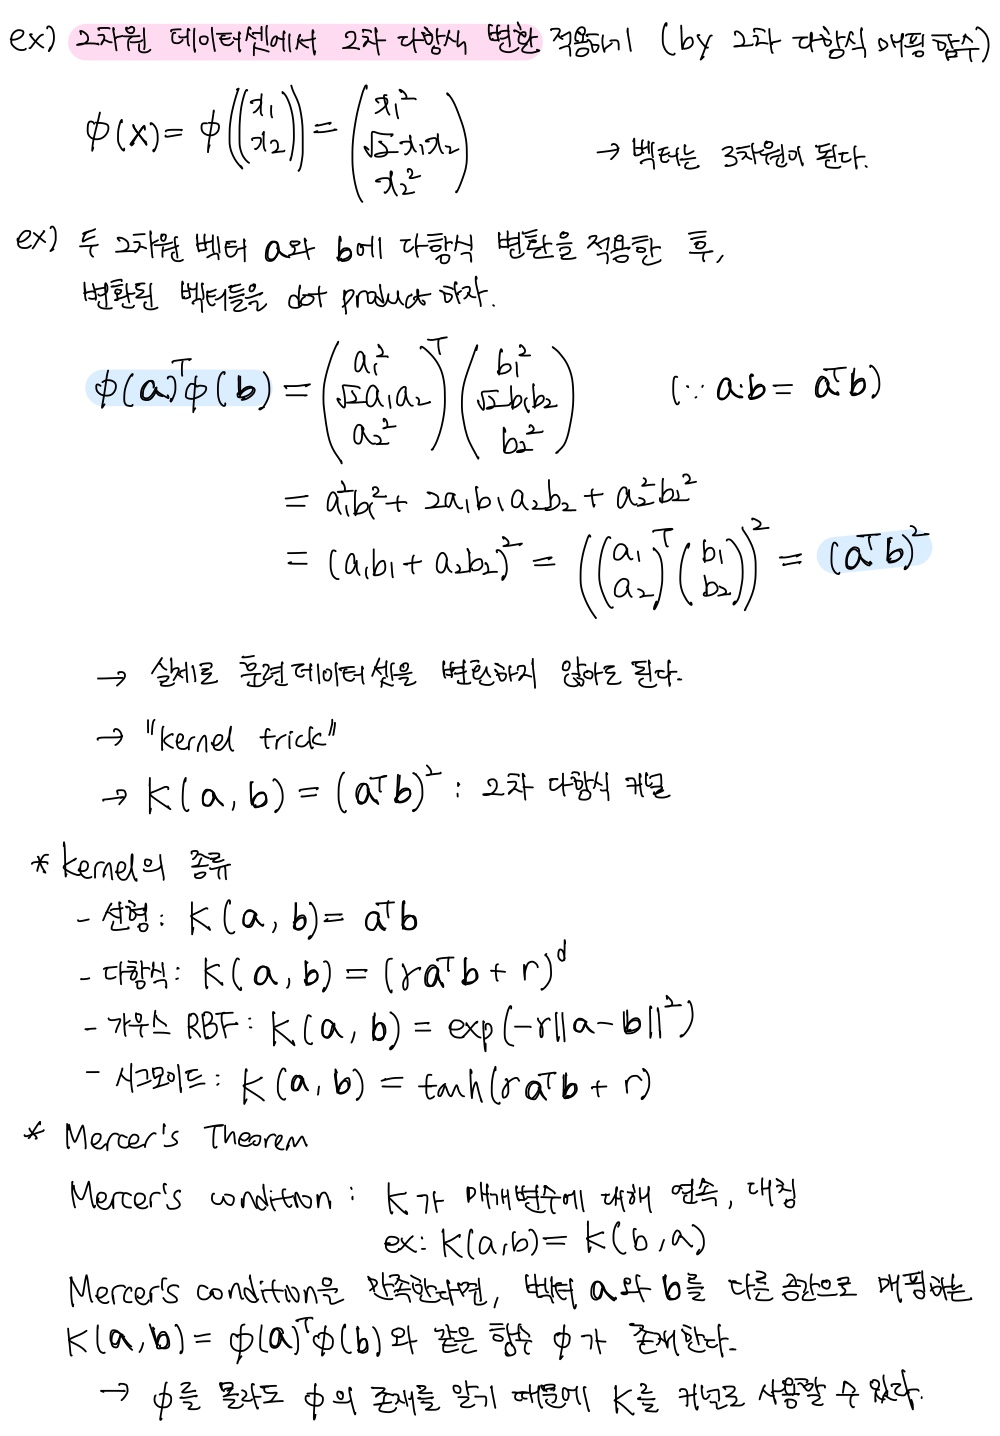 ex) 2차원 데이터셋에서 2차 다항식 변환 적용하기 (by 2차 다항식 매핑 함수)
φ(x) = φ((x₁ x₂)) = (x₁² √2x₁x₂ x₂²) → 벡터는 3차원이 된다.
ex) 두 2차원 벡터 a와 b에 다항식 변환을 적용한 후,
변환된 벡터들을 dot product 하자.
φ(a)ᵀφ(b) = (a₁² √2a₁a₂ a₂²)ᵀ (b₁² √2b₁b₂ b₂²) (∵ a·b = aᵀb)
= a₁²b₁² + 2a₁b₁a₂b₂ + a₂²b₂²
= (a₁b₁ + a₂b₂)² = ((a₁ a₂)ᵀ (b₁ b₂))² = (aᵀb)²
→ 실제로 훈련 데이터셋을 변환하지 않아도 된다.
→ "kernel trick"
→ K(a, b) = (aᵀb)² : 2차 다항식 커널
* kernel의 종류
- 선형: K(a, b) = aᵀb
- 다항식: K(a, b) = (γaᵀb + r)ᵈ
- 가우스 RBF: K(a, b) = exp(-r||a-b||²)
- 시그모이드: K(a, b) = tanh(γaᵀb + r)
* Mercer's Theorem
Mercer's condition : K가 매개변수에 대해 연속, 대칭
ex: K(a,b) = K(b,a)
Mercer's condition을 만족한다면, 벡터 a와 b를 다른 공간으로 매핑하는
K(a, b) = φ(a)ᵀφ(b)와 같은 함수 φ가 존재한다.
→ φ를 몰라도 φ의 존재를 알기 때문에 K를 커널로 사용할 수 있다.